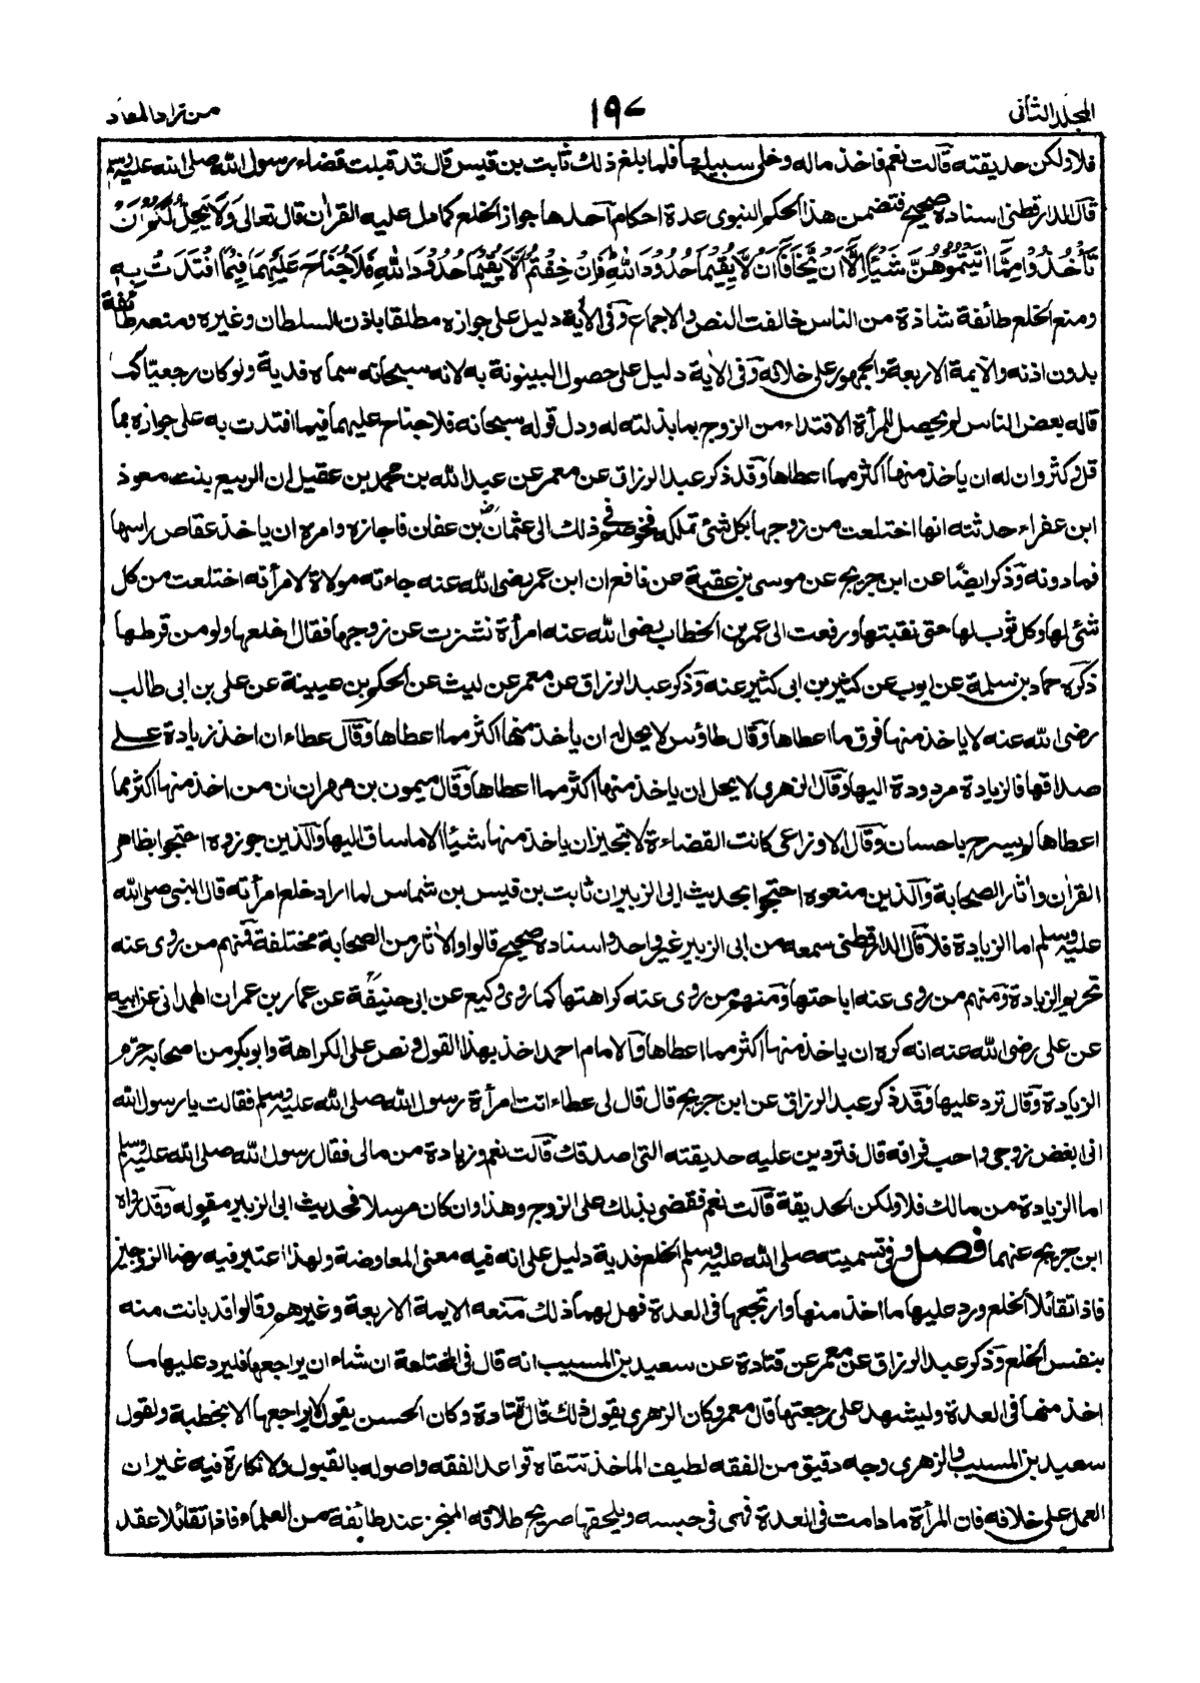 المجلد الثانى
١٩٧
من زاد المعاد
فلا ولكن حديقته قالت نعم فاخذ ماله وخلى سبيلها فلما بلغ ذلك ثابت بن قيس قال قد قبلت قضاء رسول الله صلى الله عليه وسلم
قال الدارقطنى اسناده صحيح فتضمن هذا الحكم النبوى عدة احكام آحدها جواز الخلع كما دل عليه القراٰن قال تعالىٰ وَلَا يَحِلُّ لَكُمْ اَنْ
تَأْخُذُوْا مِمَّا اٰتَيْتُمُوْهُنَّ شَيْئًا اِلَّا اَنْ يَّخَافَا اَنْ لَّا يُقِيْمَا حُدُوْدَ اللهِ فَاِنْ خِفْتُمْ اَلَّا يُقِيْمَا حُدُوْدَ اللهِ فَلَا جُنَاحَ عَلَيْهِمَا فِيْمَا افْتَدَتْ بِهٖ
ومنع الخلع طائفة شاذة من الناس خالفت النص والاجماع وفى الاٰية دليل على جوازه مطلقا باذن السلطان وغيره ومنعه طائفة
بدون اذنه والآيمة الاربعة والجمهور على خلافه وفى الاٰية دليل على حصول البينونة به لانه سبحانه سماه فدية ولو كان رجعيّا كما
قاله بعض الناس لم يحصل للمرأة الافتداء من الزوج بما بذلته له ودل قوله سبحانه فلا جناح عليهما فيما افتدت به على جوازه بما
قل وكثر وان له ان ياخذ منها اكثر مما اعطاها وقد ذكر عبد الرزاق عن معمر عن عبد الله بن محمد بن عقيل ان الربيع بنت معوذ
ابن عفراء حدثته انها اختلعت من زوجها بكل شئ تملكه فخوصم فى ذلك الى عثمان بن عفان فاجازه وامره ان ياخذ عقاص راسها
فما دونه وذكر ايضًا عن ابن جريج عن موسى بن عقبة عن نافع ان ابن عمر رضى الله عنه جاءته مولاة لامرأته اختلعت من كل
شئ لها وكل ثوب لها حتى نقبتها ورفعت الى عمر بن الخطاب رضى الله عنه امرأة نشزت عن زوجها فقال اخلعها ولو من قرطها
ذكره حماد بن سلمة عن ايوب عن كثير بن ابى كثير عنه وذكر عبد الرزاق عن معمر عن ليث عن الحكم بن عيينة عن على بن ابى طالب
رضى الله عنه لا ياخذ منها فوق ما اعطاها وقال طاؤس لا يحل له ان ياخذ منها اكثر مما اعطاها وقال عطاء ان اخذ زيادة على
صداقها فالزيادة مردودة اليها وقال الزهرى لا يحل ان ياخذ منها اكثر مما اعطاها وقال ميمون بن مهران ان من اخذ منها اكثر مما
اعطاها لم يسرح باحسان وقال الاوزاعى كانت القضاءة لا تجيز ان ياخذ منها شيئا الا ما ساق اليها والذين جوزوه احتجوا بظاهر
القراٰن واٰثار الصحابة والذين منعوه احتجوا بحديث ابى الزبير ان ثابت بن قيس بن شماس لما اراد خلع امرأته قال النبى صلى الله
عليه وسلم اما الزيادة فلا قال الدارقطنى سمعه من ابى الزبير غير واحد واسناده صحيح قالوا والاٰثار من الصحابة مختلفة فمنهم من روى عنه
تحريم الزيادة ومنهم من روى عنه اباحتها ومنهم من روى عنه كراهتها كما روى وكيع عن ابى حنيفة عن عمار بن عمران الهمدانى عن ابيه
عن على رضى الله عنه انه كره ان ياخذ منها اكثر مما اعطاها والامام احمد اخذ بهذا القول ونص على الكراهة وابو بكر من اصحابه حرم
الزيادة وقال ترد عليها وقد ذكر عبد الرزاق عن ابن جريج قال قال لى عطاء اتت امرأة رسول الله صلى الله عليه وسلم فقالت يا رسول الله
انى ابغض زوجى واحب فراقه قال فتردين عليه حديقته التى اصدقك قالت نعم وزيادة من مالى فقال رسول الله صلى الله عليه وسلم
اما الزيادة من مالك فلا ولكن الحديقة قالت نعم فقضى بذلك على الزوج وهذا وان كان مرسلا فحديث ابى الزبير مقوله وقد رواه
ابن جريج عنهما فصل وفى تسميته صلى الله عليه وسلم الخلع فدية دليل على انه فيه معنى المعاوضة ولهذا اعتبر فيه رضا الزوجين
فاذا تقائلا الخلع ورد عليها ما اخذ منها وارتجعها فى العدة فهل لهما ذلك منعه الايمة الاربعة وغيرهم وقالوا قد بانت منه
بنفس الخلع وذكر عبد الرزاق عن معمر عن قتادة عن سعيد بن المسيب انه قال فى المختلعة ان شاء ان يراجعها فليرد عليها ما
اخذ منها فى العدة وليشهد على رجعتها قال معمر وكان الزهرى يقول ذلك قال قتادة وكان الحسن يقول لا يراجعها الا بخطبة ولقول
سعيد بن المسيب والزهرى وجه دقيق من الفقه لطيف الماخذ تتلقاه قواعد الفقه واصوله بالقبول ولا نكارة فيه غير ان
العمل على خلافه فان المرأة ما دامت فى العدة فهى فى حبسه ويلحقها صريح طلاقه المنجز عند طائفة من العلماء فاذا تقائلا عقد